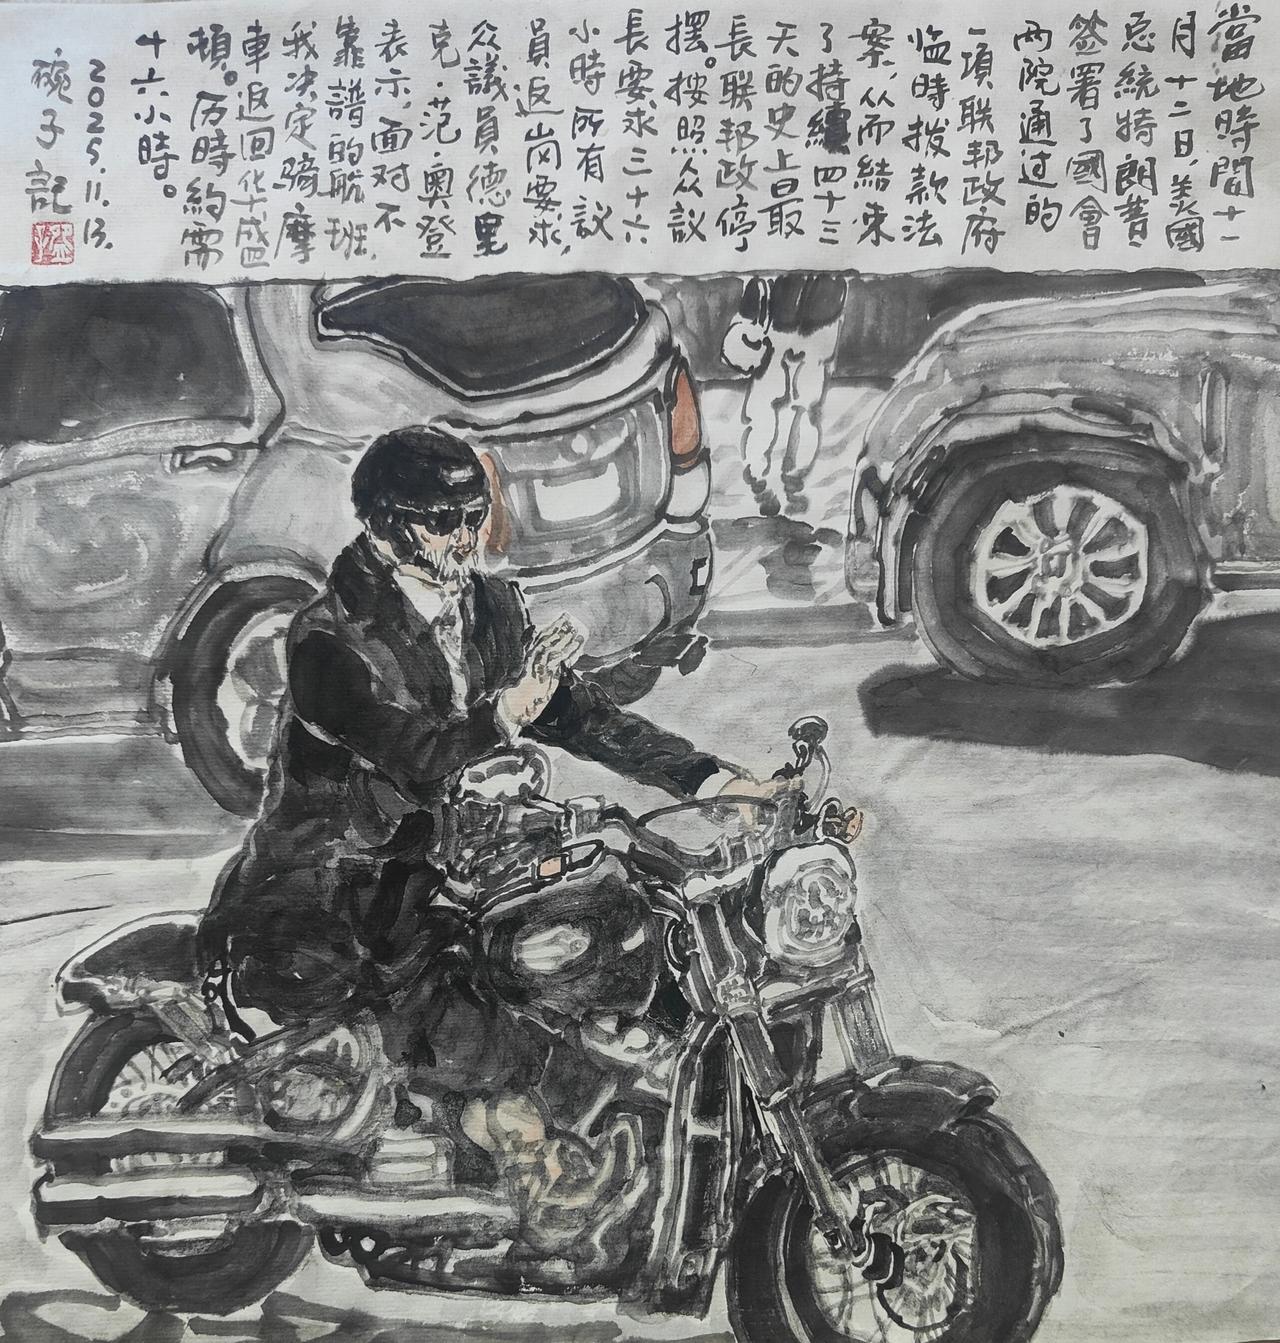 當地時間十一
月十二日，美國
总統特朗普
签署了國會
两院通过的
一項联邦政府
临時拨款法
案，从而結束
了持續四十三
天的史上最
長联邦政停
摆。按照众議
長要求三十六
小時所有議
員返岗要求，
众議員德里
克·范·奥登
表示，面对不
靠譜的航班，
我决定骑摩
車返回华盛
頓。历時約需
十六小時。
2025.11.13.
碗子記